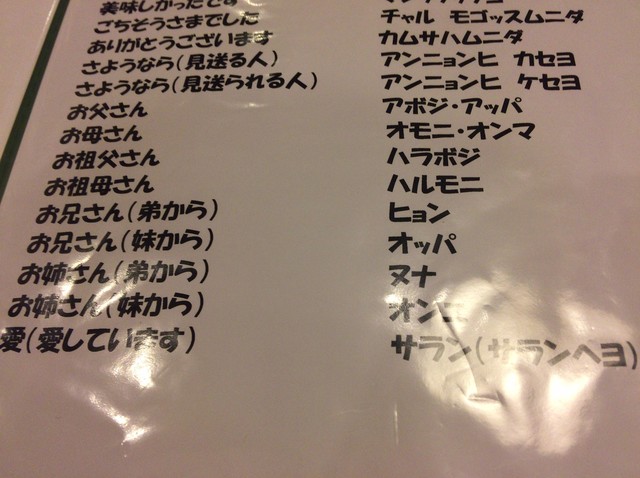 美味しかったです
ごちそうさまでした チャル モゴッスムニダ
ありがとうございます カムサハムニダ
さようなら(見送る人) アンニョンヒ カセヨ
さようなら(見送られる人) アンニョンヒ ケセヨ
お父さん アボジ・アッパ
お母さん オモニ・オンマ
お祖父さん ハラボジ
お祖母さん ハルモニ
お兄さん(弟から) ヒョン
お兄さん(妹から) オッパ
お姉さん(弟から) ヌナ
お姉さん(妹から) オンニ
愛(愛しています) サラン(サランヘヨ)